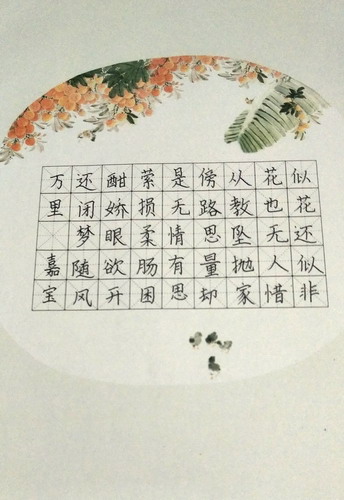 似花还似非
花也无人惜
从教坠抛家
傍路思量却
是无情有思
萦损柔肠困
酣娇眼欲开
还闭梦随风
万里 嘉宝